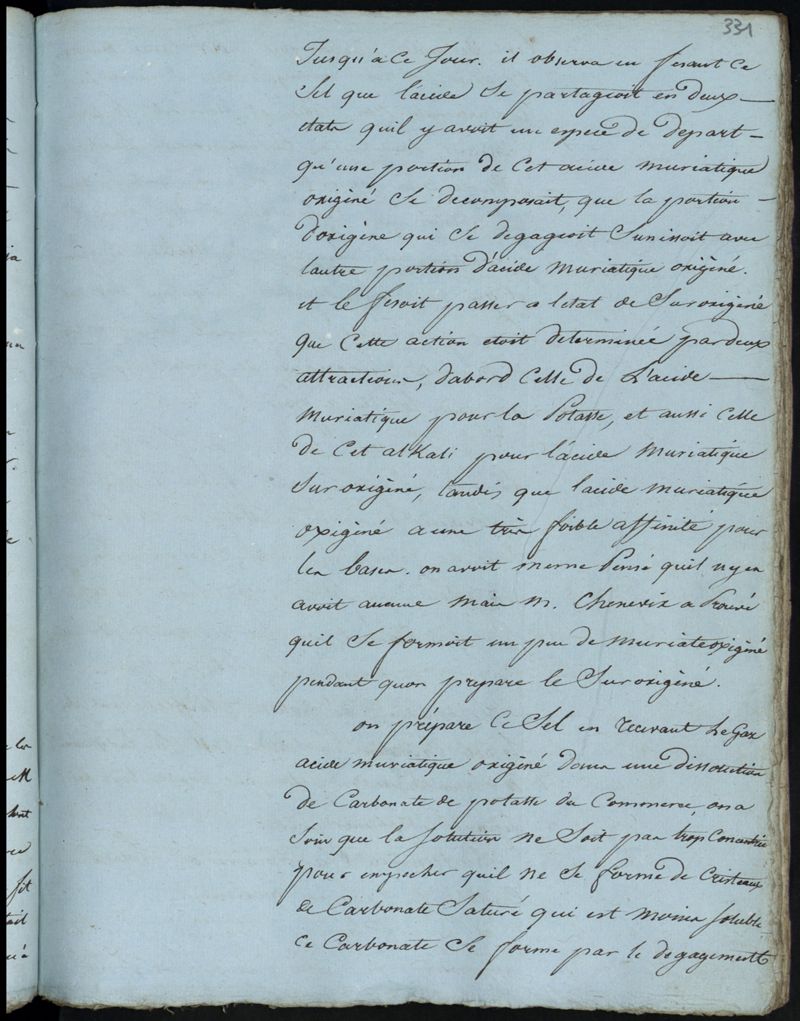 331
Jusqu'à ce Jour. il observa en fesant ce
Sel que l'acide Se partageoit en deux
états quil y avoit un espece de depart
qu'une portion de Cet acide muriatique
oxigèné Se decomposait, que la portion
d'oxigène qui Se degageoit Sunissoit avec
lautre portion d'acide muriatique oxigèné.
et le fesoit passer a letat de Suroxigèné
que Cette action etoit determinée par deux
attractions, d'abord Celle de L'acide
muriatique pour la Potasse, et aussi Celle
de Cet alKali pour l'acide muriatique
Suroxigèné, tandis que lacide muriatique
oxigèné a une très foible affinité pour
les bases. on avoit meme Pensé quil n'y en
avoit aucune mais M. Chenevix a Trouvé
quil Se formoit un peu de muriate oxigèné
pendant quon prepare le Suroxigèné.
on prépare Ce Sel en recevant Le Gaz
acide muriatique oxigèné dans une dissolution
de Carbonate de potasse du Commerce on a
Soin que la Solution ne Soit pas trop Concentrée
pour empecher quil ne Se forme de Cristeaux
de Carbonate Saturé qui est moins Soluble
Ce Carbonate Se forme par le degagement